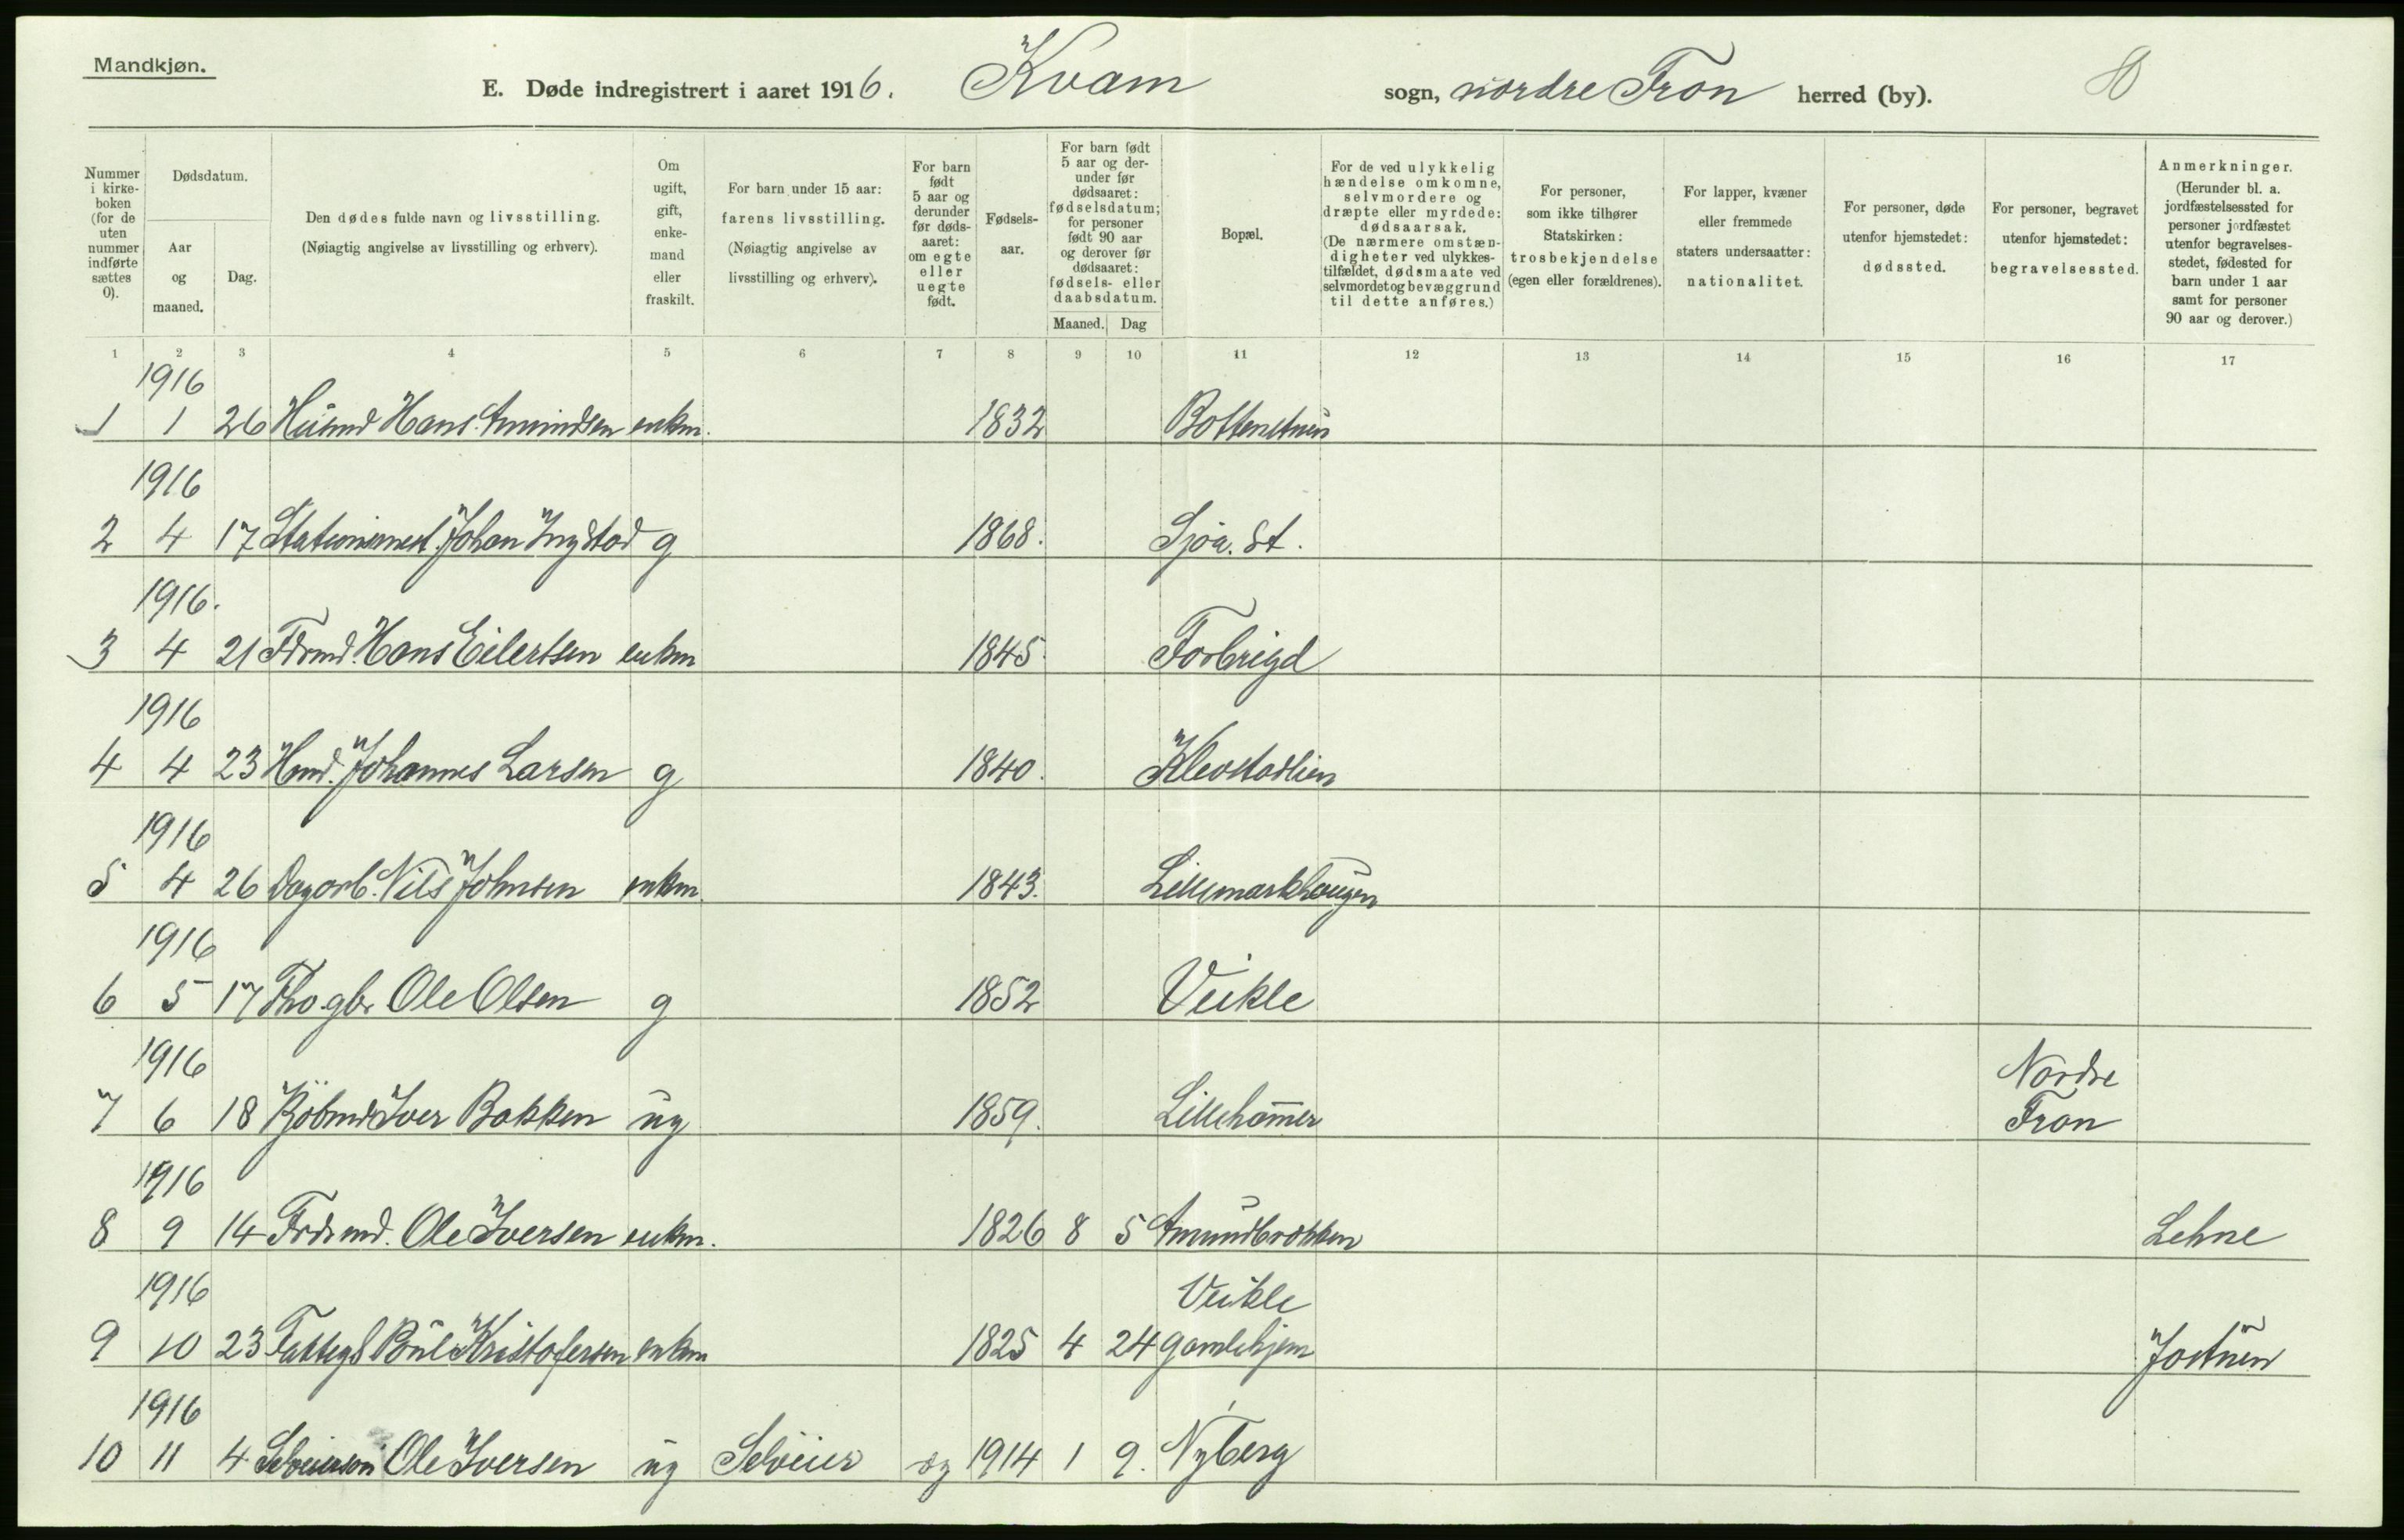 Mandkjøn.
E. Døde indregistrert i aaret 1916. Kvam sogn, nordre Fron herred (by).
Nummer i kirke- boken (for de uten nummer indførte sættes 0).
Dødsdatum.
Aar og maaned.
Dag.
Den dødes fulde navn og livsstilling.
(Nøiagtig angivelse av livsstilling og erhverv).
Om ugift, gift, enke- mand eller fraskilt.
For barn under 15 aar:
farens livsstilling.
(Nøiagtig angivelse av
livsstilling og erhverv).
For barn født 5 aar og derunder før døds- aaret: om egte eller uegte født.
Fødsels- aar.
For barn født 5 aar og der- under før dødsaaret: fødselsdatum; for personer født 90 aar og derover før dødsaaret: fødsels- eller daabsdatum.
Maaned. Dag
Bopæl.
For de ved ulykkelig hændelse omkomne, selvmordere og dræpte eller myrdede: dødsaarsak. (De nærmere omstæn- digheter ved ulykkes- tilfældet, dødsmaate ved selvmordet og bevæggrund til dette anføres.)
For personer, som ikke tilhører Statskirken: trosbekjendelse (egen eller forældrenes).
For lapper, kvæner eller fremmede staters undersaatter: nationalitet.
For personer, døde utenfor hjemstedet: dødssted.
For personer, begravet utenfor hjemstedet: begravelsessted.
Anmerkninger. (Herunder bl. a. jordfæstelsessted for personer jordfæstet utenfor begravelses- stedet, fødested for barn under 1 aar samt for personer 90 aar og derover.)
1 2 3 4 5 6 7 8 9 10 11 12 13 14 15 16 17
1916
1 1 26 Husmd Hans Amundsen enkm. 1832
1916
2 4 17 Stationsmest. Johan Ingstad g 1868. Sjoa. St.
1916.
3 4 21 Fdrmd. Hans Eilertsen enkm 1845. Forbrigd
1916
4 4 23 Hmd. Johannes Larsen g 1840. Klevstadlien
1916
5 4 26 Dagarb. Nils Johnsen enkm. 1843. Lillemarkhaugen
1916
6 5 17 Fho. gbr Ole Olsen g 1852 Veikle
1916 Nordre
7 6 18 Kjöbmd Iver Bakken ug 1859. Lillehamer Fron
1916
8 9 14 Frdrmd. Ole Iversen enkm. 1826 8 5 Amundbakken Lehne
1916 Veikle
9 10 23 Fattigl Paul Kristofersen enkm 1825 4 24 gamlehjem Jostuen
1916
10 11 4 Selveierson Ole Iversen ug Selveier eg 1914 1 9. Nyberg